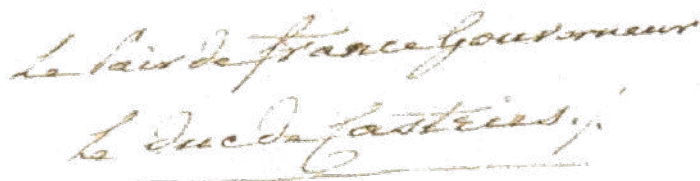 Le Pair de france Gouverneur
Le duc de Castries